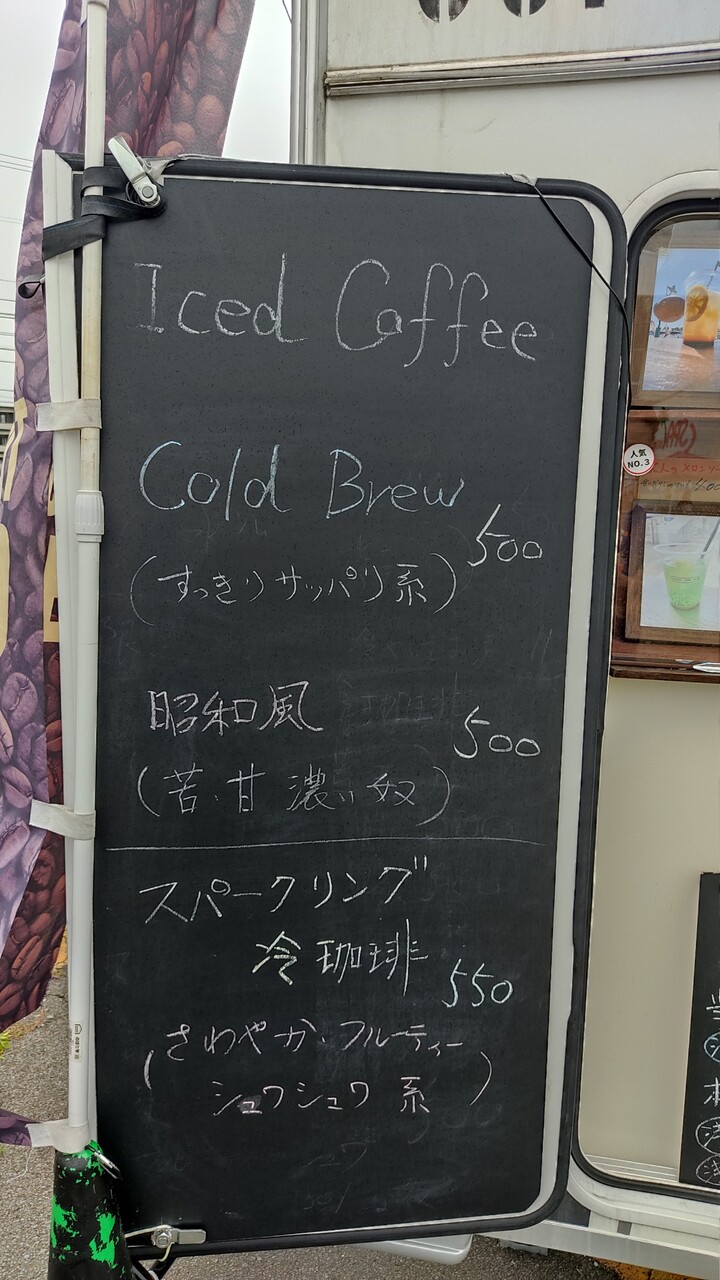 Iced Coffee
Cold Brew
500
(すっきりサッパリ系)
昭和風
500
(苦、甘 濃い奴)
スパークリング
冷珈琲
550
(さわやか・フルーティー
シュワシュワ系)
人気
NO.3